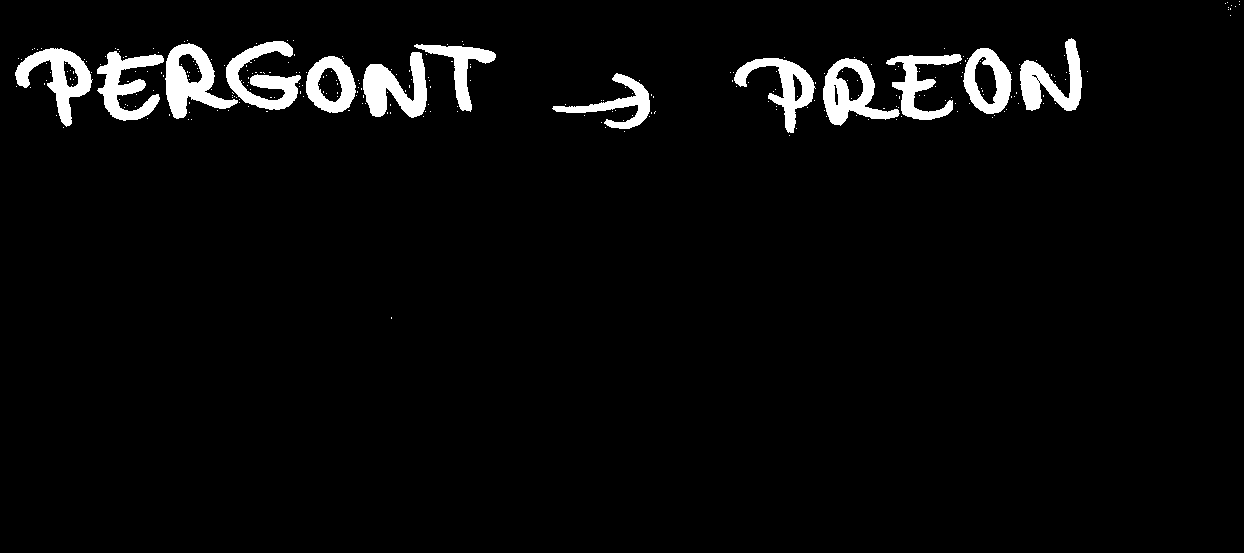 PERGONT → PREON